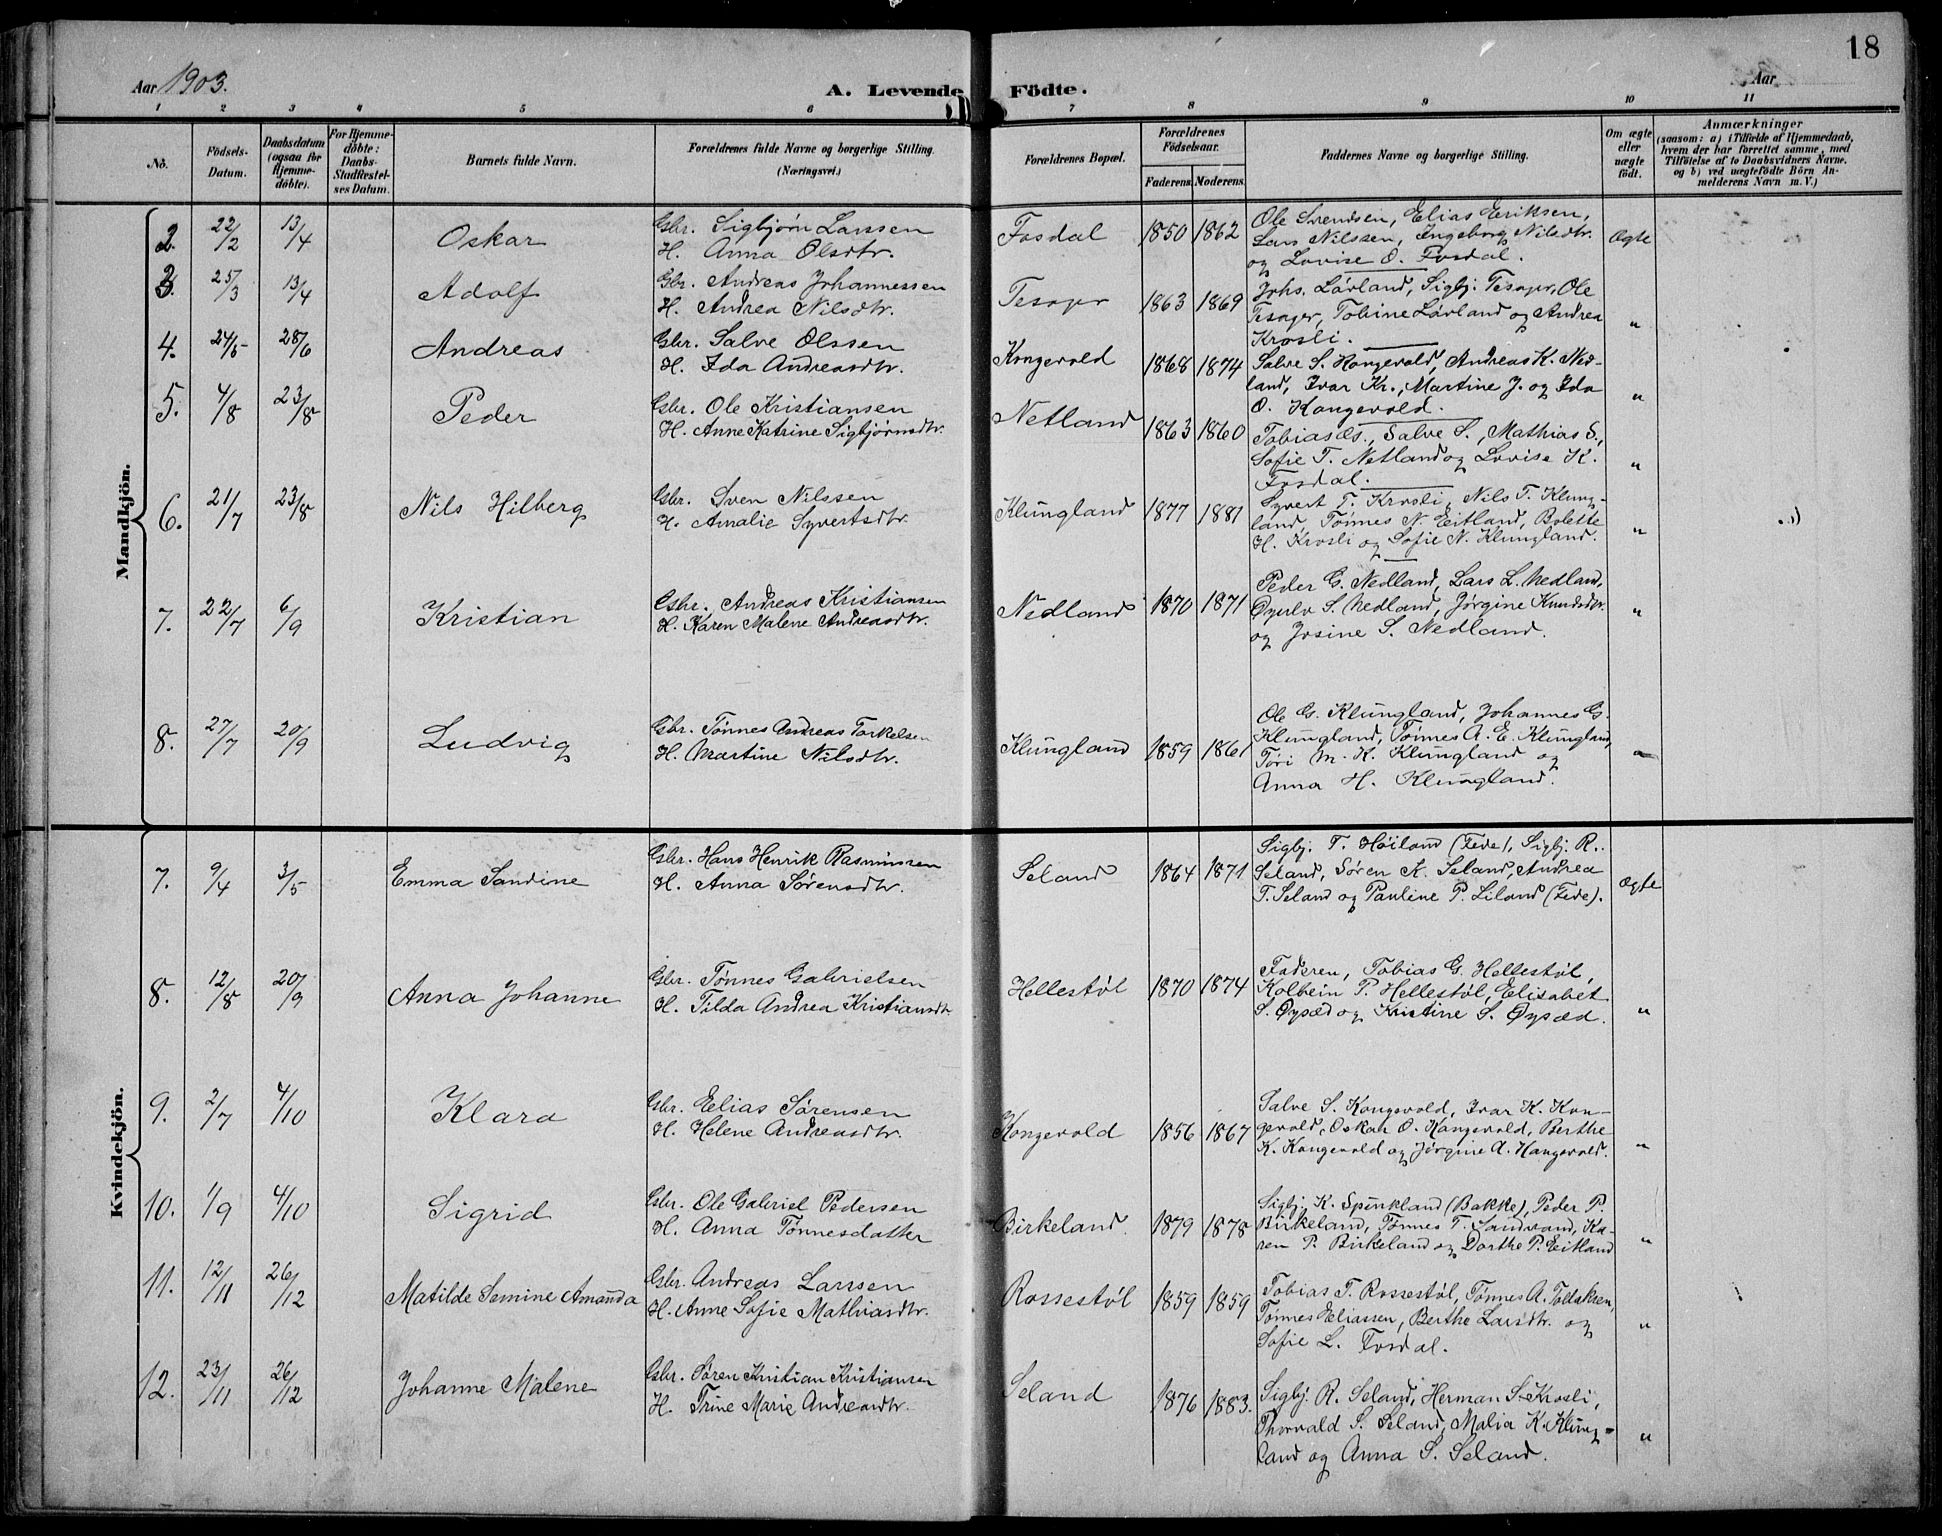 18
Aar 1903.
A. Levende Födte.
Aar
1 2 3 4 5 6 7 8 9 10 11
No.
Födsels-Datum.
Daabsdatum (ogsaa for Hjemme-döbte).
For Hjemme-döbte: Daabs-Stadfæstel-ses Datum.
Barnets fulde Navn.
Forældrenes fulde Navne og borgerlige Stilling. (Næringsvei.)
Forældrenes Bopæl.
Forældrenes Födselsaar.
Faderens. Moderens.
Faddernes Navne og borgerlige Stilling.
Om ægte eller uægte födt.
Anmærkninger
(saasom: a) i Tilfælde af Hjemmedaab, hvem der har forrettet samme, med Tilföielse af to Daabsvidners Navne, og b) ved uægtefödte Börn An-melderens Navn m. V.)
Mandkjön.
2. 22/2 13/4 Oskar
Gbr. Sigbjørn Larssen
H. Anna Olsdtr.
Fosdal 1850 1862
Ole Svendsen, Elias Eriksen,
Lars Nilssen, Ingeborg Nilsdtr.
og Lovise O. Fosdal.
Ægte
3. 25/3 13/4 Adolf
Gbr. Andreas Johannessen
H. Andrea Nilsdtr.
Tesager 1863 1869
Johs. Lavland, Sigbj. Tesager, Ole
Tesager, Tobine Lavland og Andrea
Krosli.
"
4. 24/5 28/6 Andreas
Gbr. Salve Olssen
H. Ida Andreasdtr.
Kongevold 1868 1874
Salve S. Kongevold, Andreas K. Ned-
land, Ivar Kr., Martine J. og Ida
O. Kongevold.
"
5. 4/8 23/8 Peder
Gbr. Ole Kristiansen
H. Anne Katrine Sigbjørnsdtr.
Netland 1863 1860
Tobias S., Salve S., Mathias S.,
Sofie T. Netland og Lovise K.
Fosdal.
"
6. 21/7 23/8 Nils Hilberg
Gbr. Sven Nilssen
H. Amalie Syvertsdtr.
Klungland 1877 1881
Syvert T. Krosli, Nils T. Klung-
land, Tönnes N. Eitland, Bolette
H. Krosli og Sofie N. Klungland.
"
7. 22/7 6/9 Kristian
Gbr. Andreas Kristiansen
H. Karen Malene Andreasdtr.
Nedland 1870 1871
Peder G. Nedland, Lars L. Nedland,
S. Nedland, Jørgine Knudsdtr.
og Josine S. Nedland.
"
8. 27/7 20/9 Ludvig
Gbr. Tønnes Andreas Torkelsen
H. Martine Nilsdtr.
Klungland 1859 1861
Ole G. Klungland, Johannes G.
Klungland, Tönnes A. E. Klungland,
Töri M. K. Klungland og
Anna H. Klungland.
"
Kvindekjön.
7. 9/4 3/5 Emma Sandine
Gbr. Hans Henrik Rasmussen
H. Anna Sörensdtr.
Seland 1864 1871
Sigbj. T. Höiland (Fede), Sigbj. R.
Seland, Søren K. Seland, Andrea
T. Seland og Pauline P. Liland (Fede).
Ægte
8. 12/8 20/9 Anna Johanne
Gbr. Tønnes Gabrielsen
H. Tilda Andrea Kristiansdtr
Hellestøl 1870 1874
Faderen, Tobias G. Hellestøl,
Kolbein P. Hellestøl, Elisabet
S. Øysæd og Kristine S. Øysæd.
"
9. 2/7 4/10 Klara
Gbr. Elias Sørensen
H. Helene Andreasdtr.
Kongevold 1856 1867
Salve S. Kongevold, Ivar K. Kon-
gevold, Oskar O. Kongevold, Berthe
K. Kongevold og Jørgine A. Kongevold.
"
10. 1/9 4/10 Sigrid
Gbr. Ole Gabriel Pedersen
H. Anna Tönnesdatter
Birkeland. 1879 1878
Sigbj. K. Spinkland (Bakke), Peder P.
Birkeland, Tønnes T. Sandvand, Ka-
ren P. Birkeland og Dorthe P. Eitland
"
11. 12/11 26/12 Matilde Semine Amanda
Gbr. Andreas Larssen
H. Anne Sofie Mathiasdtr.
Rossestøl 1859 1859
Tobias T. Rossestøl, Tønnes A. Tollaksen,
Tønnes Eliassen, Berthe Larsdtr. og
Sofie L. Fosdal.
"
12. 23/11 26/12 Johanne Malene
Gbr. Søren Kristian Kristiansen
H. Trine Marie Andreasdtr.
Seland 1876 1883.
Sigbj. R. Seland, Herman S. Krosli,
Thorvald S. Seland, Malia K. Klung-
land og Anna S. Seland.
"